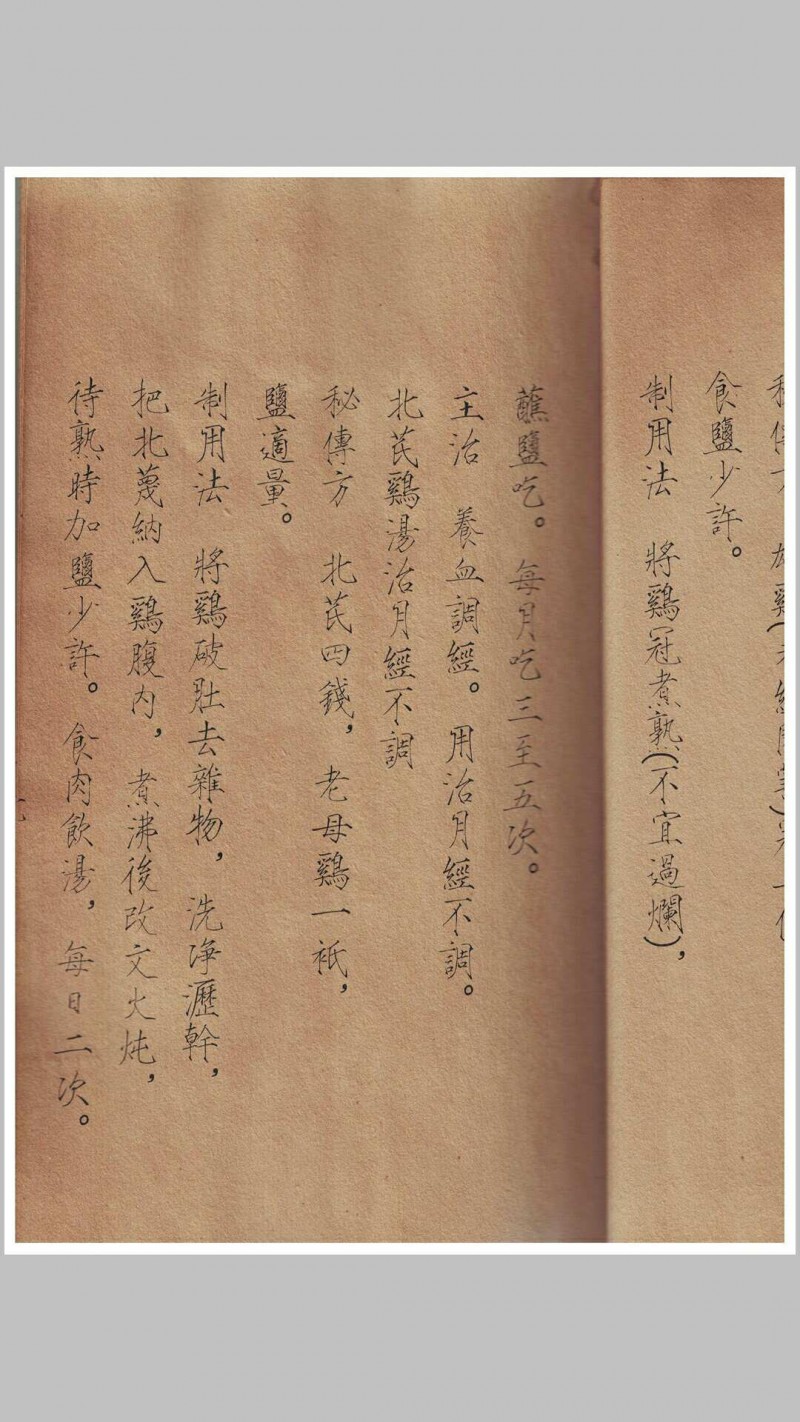 食鹽少許。
制用法　將鷄冠煮熟(不宜過爛),
蘸鹽吃。每月吃三至五次。
主治　養血調經。用治月經不調。
北芪鷄湯治月經不調
秘傳方　北芪四錢,老母鷄一衹,
鹽適量。
制用法　將鷄破肚去雜物,洗净瀝幹,
把北蔑納入鷄腹内,煮沸後改文火炖,
待熟時加鹽少許。食肉飲湯,每日二次。